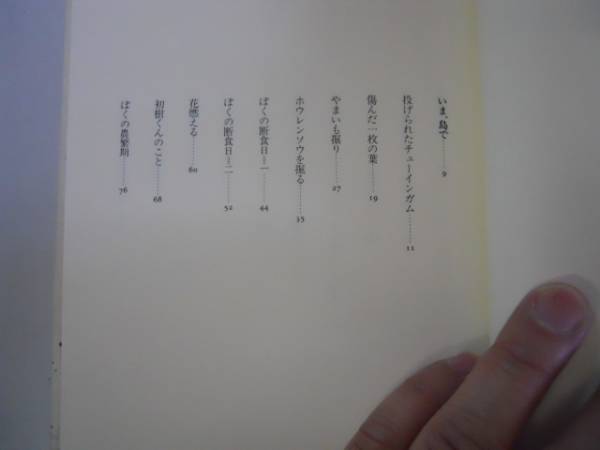 いま、島で……… 9
投げられたチューインガム……… 11
傷んだ一枚の葉……… 19
やまいも掘り……… 27
ホウレンソウを掘る……… 35
ぼくの断食日=一……… 44
ぼくの断食日=二……… 52
花感える……… 60
初樹くんのこと……… 68
ぼくの農繁期……… 76